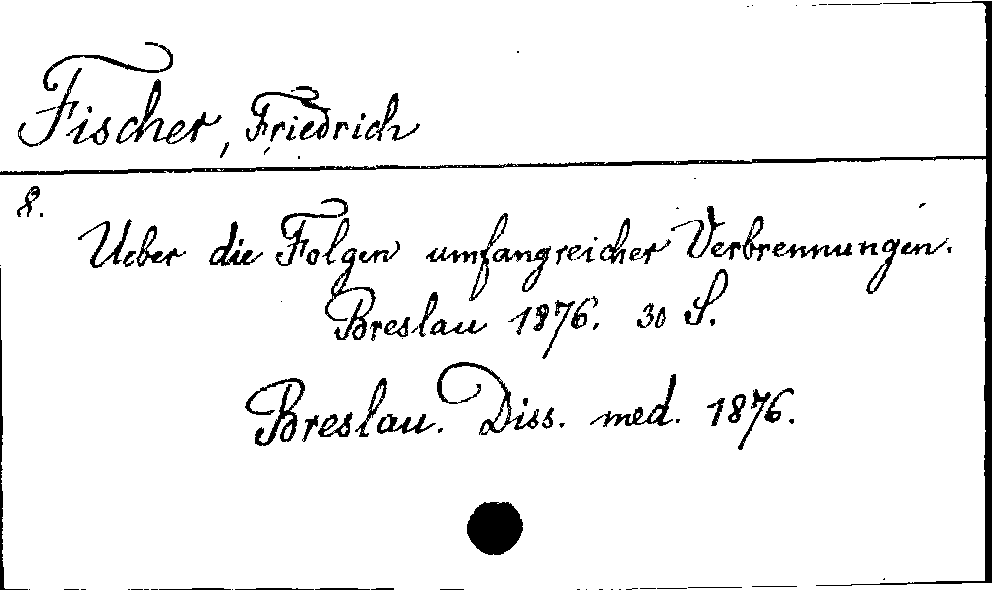 Fischer, Friedrich
8.
Ueber die Folgen umfangreicher Verbrennungen.
Breslau 1876. 30 S.
Breslau. Diss. med. 1876.